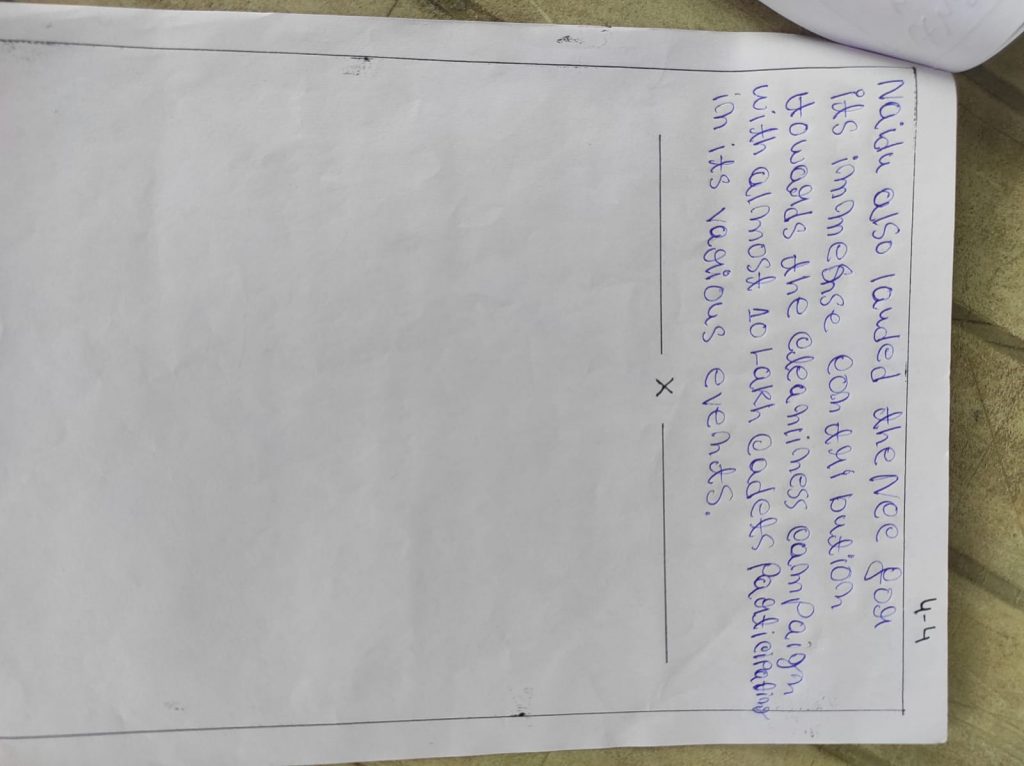 4-4
Naidu also lauded the NCC for
its immense contribution
towards the cleanliness campaign
with almost 10 Lakh cadets Participating
in its various events.
x